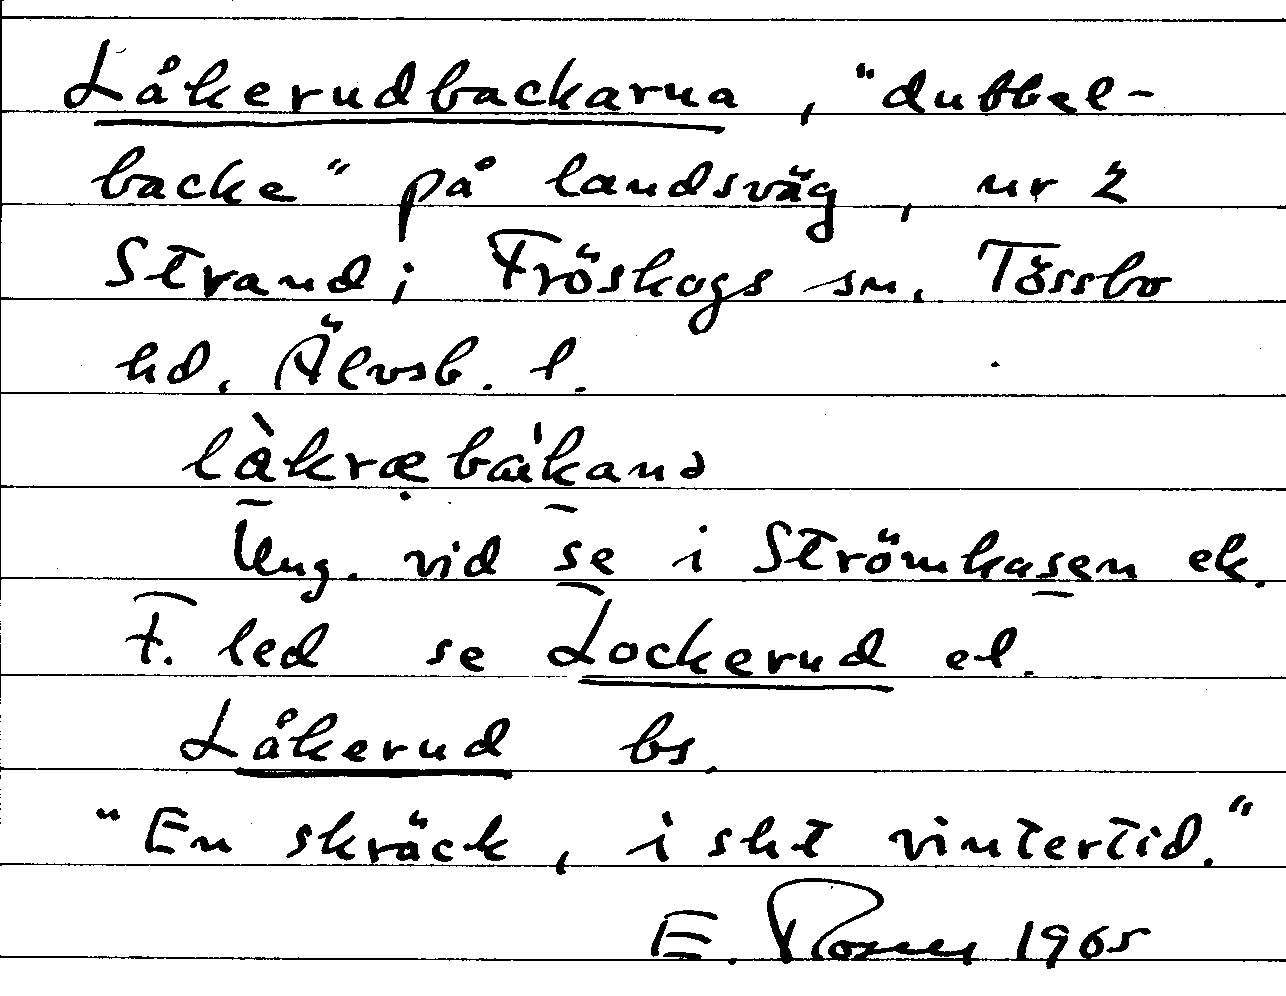 Låkerudbackarna, "dubbel-
backe" på landsväg, nr 2
Strand i Fröskogs sn. Tössbo
hd. Älvsb. l.
làkræ̣bák̀anə
Ung. vid se i Strömhasen ek.
F. led se Lockerud el.
Låkerud bs.
"En skräck, i sht vintertid."
E. 1965